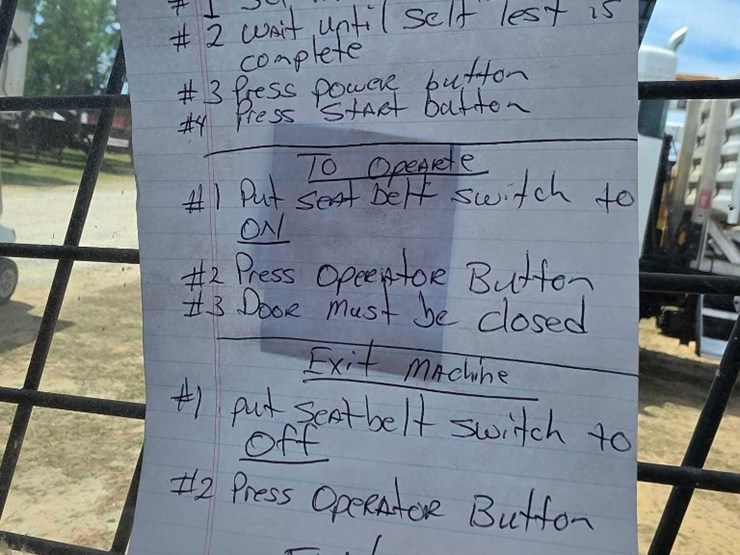 #1
#2 Wait until self test is
complete
#3 Press power button
#4 Press START button
To Opearte
#1 Put seat belt switch to
ON
#2 Press Operator Button
#3 Door must be closed
Exit Machine
#1 put seatbelt switch to
Off
#2 Press Operator Button